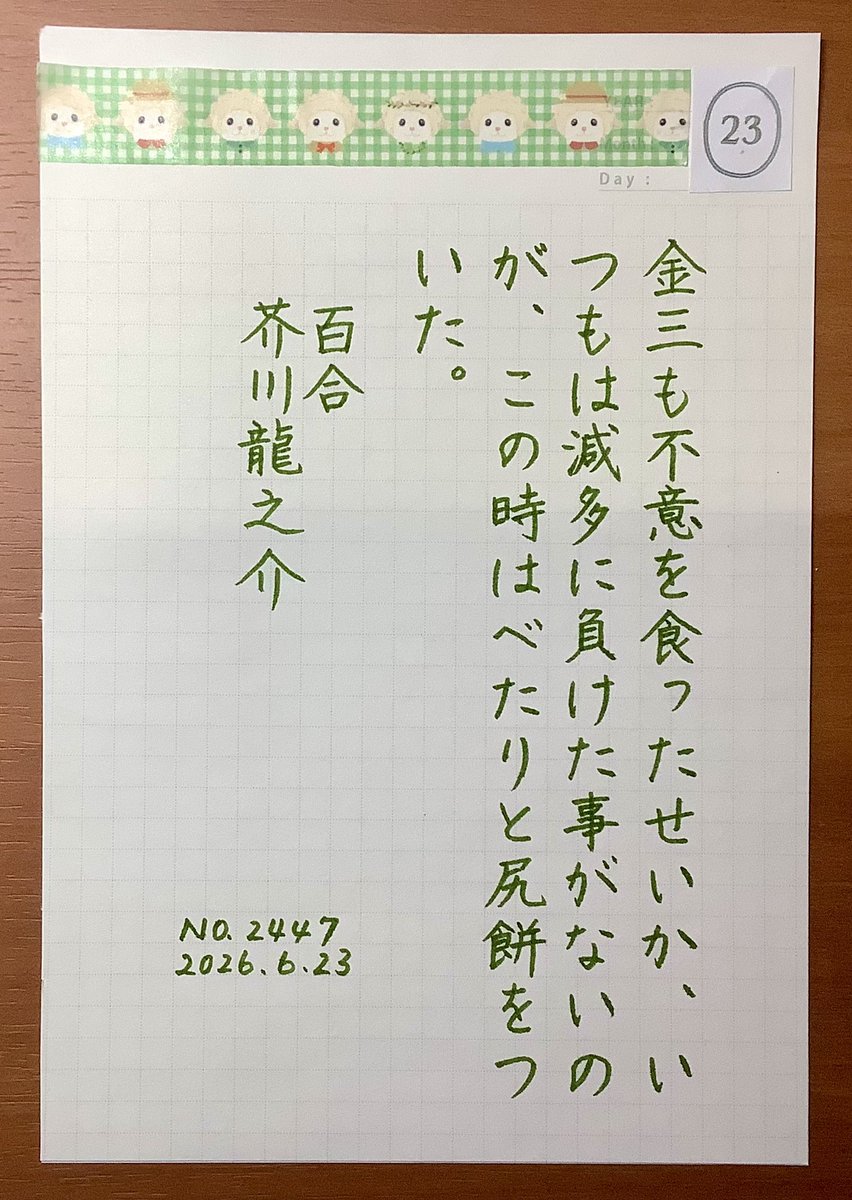 23
Day :
金三も不意を食ったせいか、い
つもは減多に負けた事がないの
が、この時はべたりと尻餅をつ
いた。
百合
芥川龍之介
NO. 2447
2026.6.23